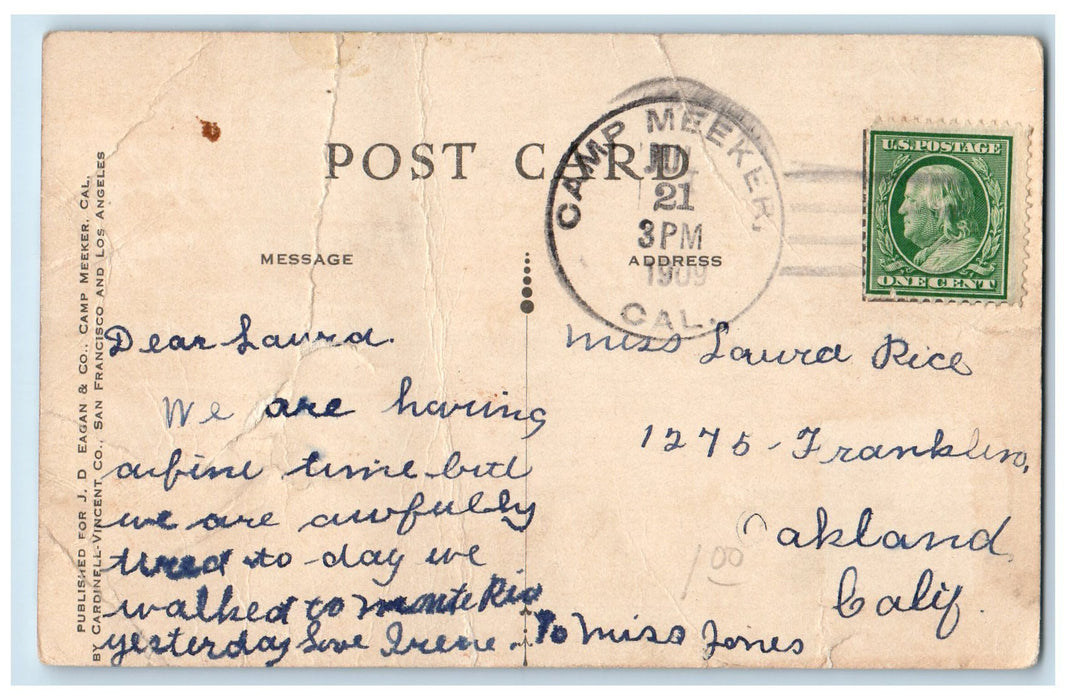 POST CARD
CAMP MEEKER,
JUL
21
3 PM
1909
CAL.
U.S. POSTAGE
ONE CENT
MESSAGE
ADDRESS
PUBLISHED FOR J. D. EAGAN & CO., CAMP MEEKER, CAL.
BY CARDINELL-VINCENT CO., SAN FRANCISCO AND LOS ANGELES
Dear Laura.
We are having
a fine time but
we are awfully
tired to-day we
walked to monte Rio
yesterday Love Irene.
To Miss Jones
Miss Laura Rice
1275-Franklin,
Oakland
Calif.
1 00